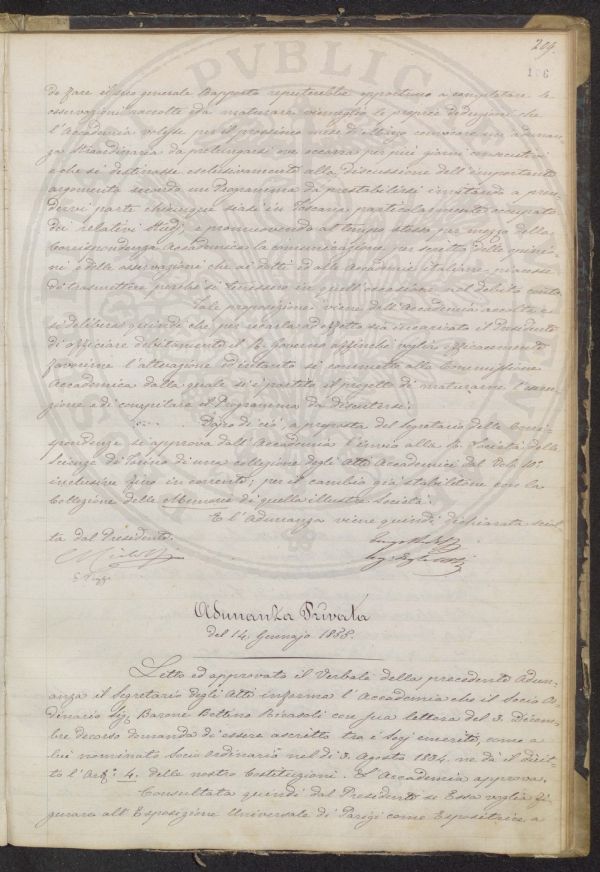 209.
106
do fare il suo generale Rapporto reputerebbe opportuno a completare le
osservazioni raccolte ed a maturare vie meglio le proprie deduzioni che
l'Accademia volesse per il prossimo mese di convocare un'adunan-
za straordinaria da prolungarsi ove occorra per più giorni consecutivi
e che si destinasse esclusivamente alla discussione dell'importante
argomento secondo un Programma da prestabilirsi invitando a pren-
dervi parte chiunque siasi in Toscana particolarmente occupato
dei relativi studj, e promuovendo al tempo stesso per mezzo della
Corrispondenza Accademica la comunicazione per scritto delle opinio-
ni e delle osservazioni che ai dotti ed alle Accademie italiane piacesse
di trasmettere perchè si tenessero in quell'occasione nel debito conto.
Tale proposizione viene dall'Accademia accolta e
si delibera quindi che per recarla ad effetto sia incaricato il Presidente
di officiare debitamente il R. Governo affinchè voglia efficacemente
favorirne l'attuazione ed intanto si commette alla Commissione
Accademica dalla quale si è partito il progetto di maturarne l'
zione e di compilare il Programma da discutersi.
Dopo di ciò, a proposta del Segretario delle Corri-
spondenze si approva dall'Accademia l'invio alla R. Società delle
Scienze di Torino di una collezione degli Atti Accademici dal Vol. 10°.
inclusive fino in corrente; per il cambio già stabilitone con la
Collezione delle Memorie di quella illustre Società.
E l'Adunanza viene quindi dichiarata sciol-
ta dal Presidente.
Adunanza Privata
del 14. Gennajo 1855.
Letto ed approvato il Verbale della precedente Adu-
nanza il Segretario degli Atti informa l'Accademia che il Socio Or-
dinario Sig. Barone Bettino Ricasoli con sua lettera del 3. Dicem-
bre decorso domanda di essere ascritto tra i Socj emeriti, come a
lui nominato Socio ordinario nel dì 3. Agosto 1834. ne dà il dirit-
to l'Art°. 4. delle nostre Costituzioni. L'Accademia approva.
Consultata quindi dal Presidente se Essa voglia fi-
gurare all'Esposizione Universale di Parigi come Espositrice a